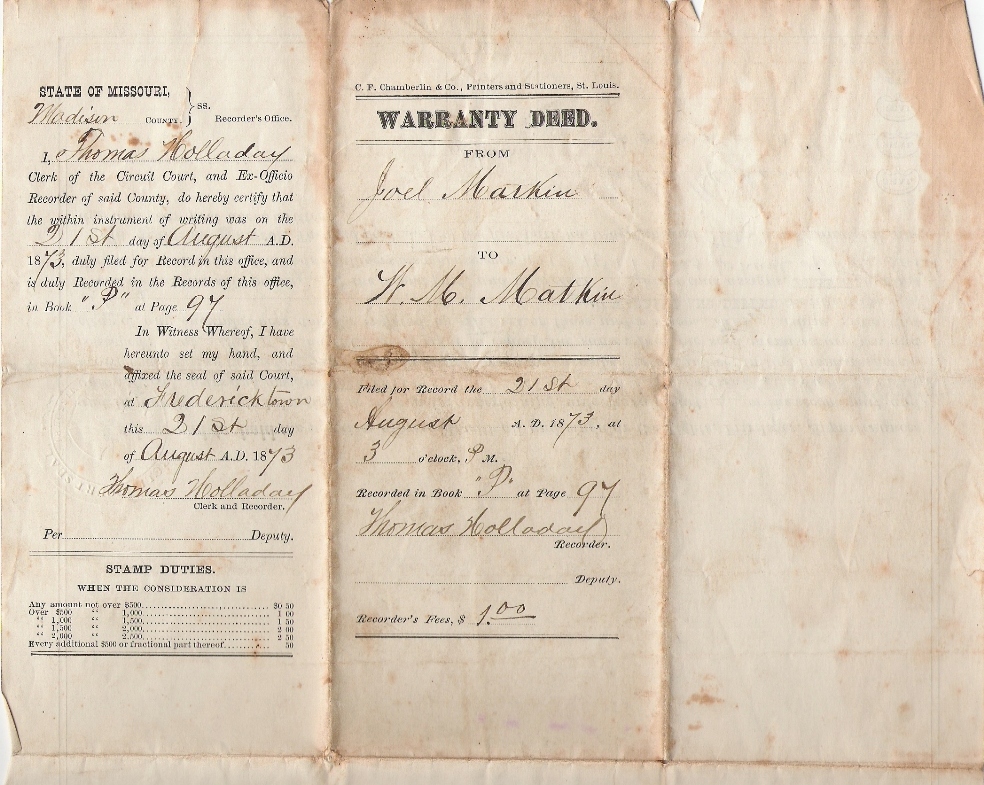 STATE OF MISSOURI,
Madison COUNTY. } ss. Recorder's Office.
I, Thomas Holladay
Clerk of the Circuit Court, and Ex-Officio
Recorder of said County, do hereby certify that
the within instrument of writing was on the
21st day of August A.D.
1873, duly filed for Record in this office, and
is duly Recorded in the Records of this office,
in Book "P" at Page 97
In Witness Whereof, I have
hereunto set my hand, and
affixed the seal of said Court,
at Fredericktown
this 21st day
of August A.D. 1873
Thomas Holladay
Clerk and Recorder.
Per Deputy.
STAMP DUTIES.
WHEN THE CONSIDERATION IS
Any amount not over $500 $0 50
Over $500 “ 1,000 1 00
“ 1,000 “ 1,500 1 50
“ 1,500 “ 2,000 2 00
“ 2,000 “ 2,500 2 50
Every additional $500 or fractional part thereof 50
C. F. Chamberlin & Co., Printers and Stationers, St. Louis.
WARRANTY DEED.
FROM
Joel Matkin
TO
W. M. Matkin
Filed for Record the 21st day
August A. D. 1873, at
3 o'clock, P M.
Recorded in Book "P" at Page 97
Thomas Holladay
Recorder.
Deputy.
Recorder's Fees, $ 1.00